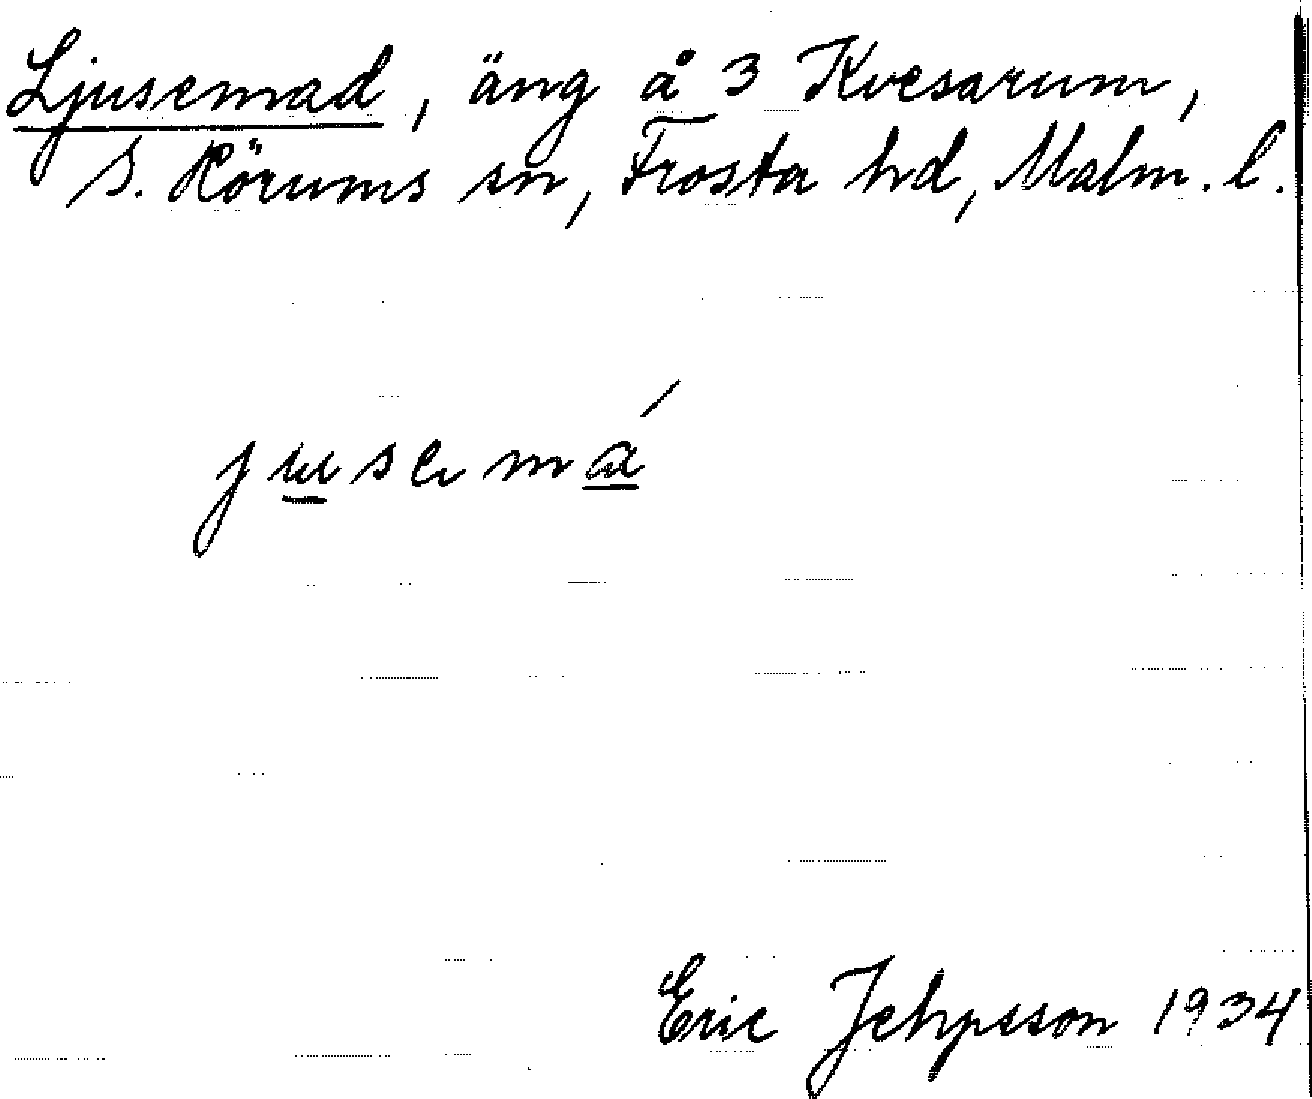 Ljusemad, äng å 3 Kvesarum,
S. Rörums sn, Frosta hd, Malm. l.
jusemá
Eric Jehpsson 1934